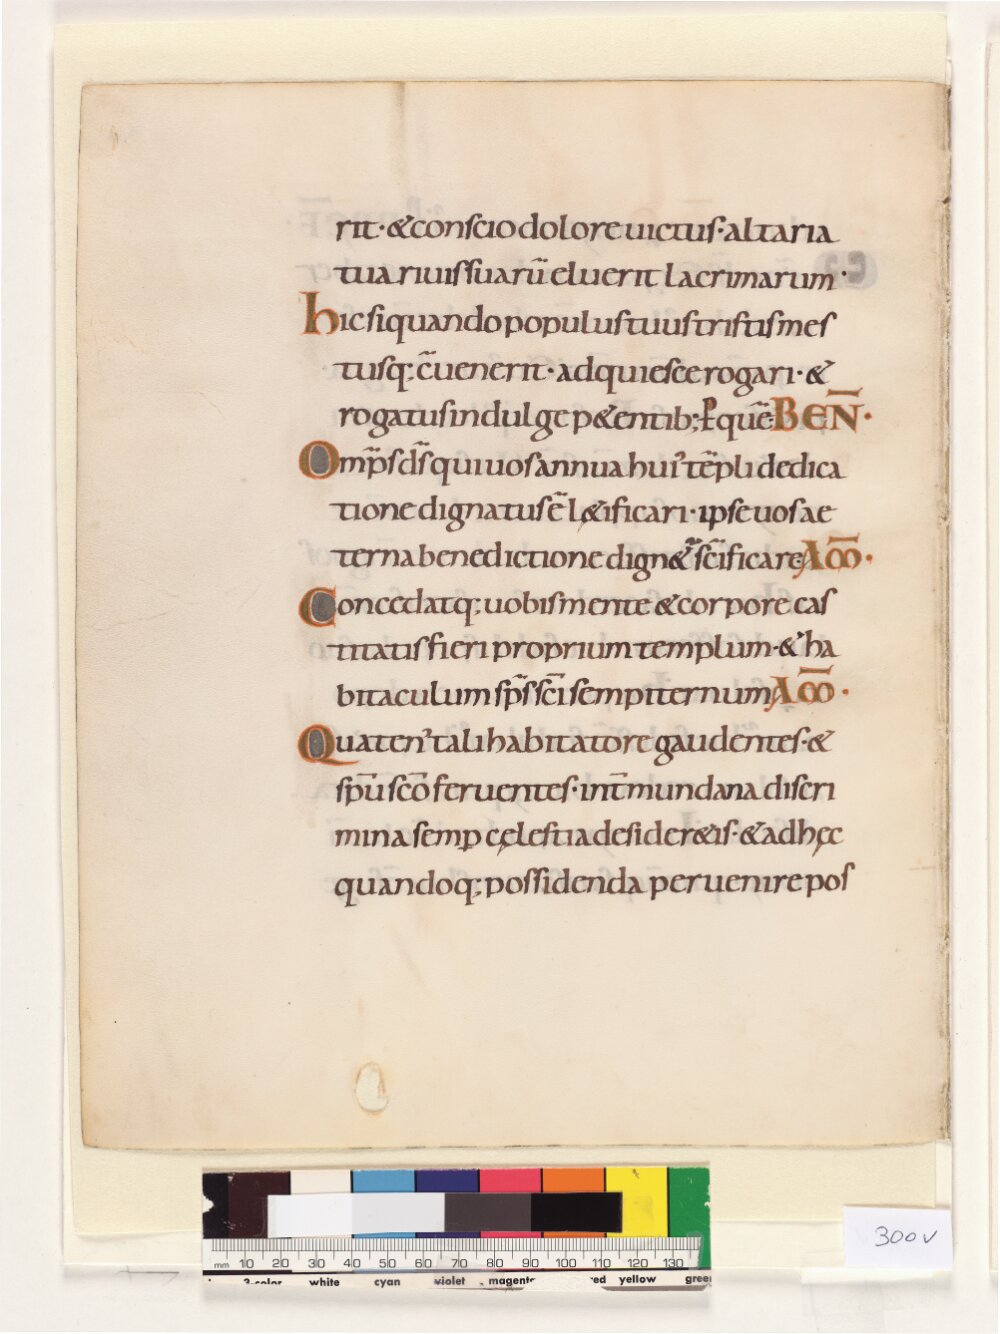 rit·&conscio dolore uictus·altaria
tua riuis suarū eluerit lacrimarum·
hic si quando populus tuus tristis mes
tusq; c̄uenerit·adquiesce rogari·&
rogatus indulge p&entib; ꝑ quē·BEN̄·
Om̄ps d̄s qui uos annua hui᾽ tēpli dedica
tione dignatus ē l&ificari·ipse uos ae
terna benedictione dign&᾽ sc̄ificare AM̄·
Concedatq; uobis mente & corpore cas
titatis fieri proprium templum·&᾽ ha
bitaculum sp̄s sc̄i sempiternum AM̄·
Quaten᾽ tali habitatore gaudentes·&
spū scō feruentes·int̄ mundana discri
mina semp cęlestia desider&is·& ad hęc
quandoq; possidenda peruenire pos
300v
mm 10 20 30 40 50 60 70 80 90 100 110 120 130
3-color white cyan violet magenta red yellow green